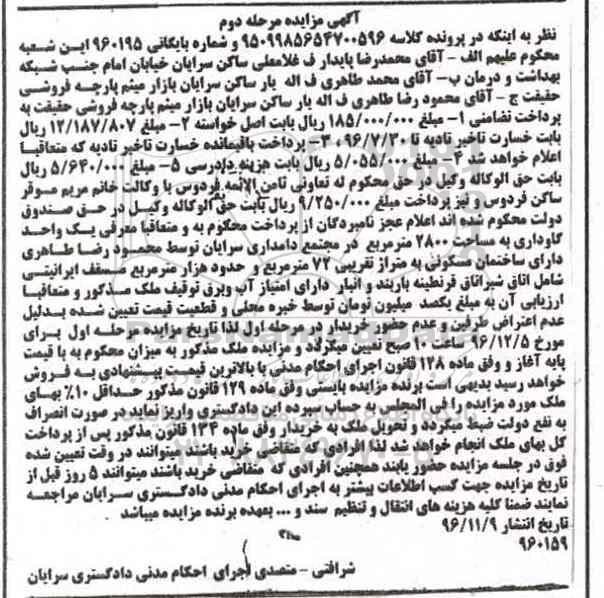 آگهی مزایده مرحله دوم
نظر به اینکه در پرونده کلاسه ۹۵۰۹۹۸۵۶۵۴۷۰۰۵۹۶ و شماره بایگانی ۹۶۰۱۹۵ این شعبه
محکوم علیهم الف - آقای محمدرضا پایدار ف غلامعلی ساکن سرایان خیابان امام جنب شبکه
بهداشت و درمان ب- آقای محمد طاهری ف اله یار ساکن سرایان بازار میثم پارچه فروشی
حقیقت ج - آقای محمود رضا طاهری ف اله یار ساکن سرایان بازار میثم پارچه فروشی حقیقت به
پرداخت تضامنی ۱- مبلغ ۱۸۵/۰۰۰/۰۰۰ ریال بابت اصل خواسته ۲- مبلغ ۱۲/۱۸۷/۸۰۷ ریال
بابت خسارت تاخیر تادیه تا ۹۶/۷/۳۰ ۳- پرداخت باقیمانده خسارت تاخیر تادیه که متعاقبا
اعلام خواهد شد ۴- مبلغ ۵/۰۵۵/۰۰۰ ریال بابت هزینه دادرسی ۵- مبلغ ۵/۶۴۰/۰۰۰ ریال
بابت حق الوکاله وکیل در حق محکوم له تعاونی ثامن الائمه فردوس با وکالت خانم مریم موقر
ساکن فردوس و نیز پرداخت مبلغ ۹/۲۵۰/۰۰۰ ریال بابت حق الوکاله وکیل در حق صندوق
دولت محکوم شده اند اعلام عجز نامبردگان از پرداخت محکوم به و متعاقبا معرفی یک واحد
گاوداری به مساحت ۲۸۰۰ مترمربع در مجتمع دامداری سرایان توسط محمود رضا طاهری
دارای ساختمان مسکونی به متراژ تقریبی ۷۲ مترمربع و حدود هزار مترمربع مسقف ایرانیتی
شامل اتاق شیراتاق قرنطینه باربند و انبار دارای امتیاز آب وبرق توقیف ملک مذکور و متعاقبا
ارزیابی آن به مبلغ یکصد میلیون تومان توسط خبره محلی و قطعیت قیمت تعیین شده بدلیل
عدم اعتراض طرفین و عدم حضور خریدار در مرحله اول لذا تاریخ مزایده مرحله اول برای
مورخ ۹۶/۱۲/۵ ساعت ۱۰ صبح تعیین میگردد و مزایده ملک مذکور به میزان محکوم به با قیمت
پایه آغاز و وفق ماده ۱۲۸ قانون اجرای احکام مدنی با بالاترین قیمت پیشنهادی به فروش
خواهد رسید بدیهی است برنده مزایده بایستی وفق ماده ۱۲۹ قانون مذکور حداقل ۱۰% بهای
ملک مورد مزایده را فی المجلس به حساب سپرده این دادگستری واریز نماید در صورت انصراف
به نفع دولت ضبط میگردد و تحویل ملک به خریدار وفق ماده ۱۳۴ قانون مذکور پس از پرداخت
کل بهای ملک انجام خواهد شد لذا افرادی که متقاضی خرید باشند میتوانند در وقت تعیین شده
فوق در جلسه مزایده حضور یابند همچنین افرادی که متقاضی خرید باشند میتوانند ۵ روز قبل از
تاریخ مزایده جهت کسب اطلاعات بیشتر به اجرای احکام مدنی دادگستری سرایان مراجعه
نمایند ضمنا کلیه هزینه های انتقال و تنظیم سند و ... بعهده برنده مزایده میباشد
تاریخ انتشار ۹۶/۱۱/۹
۹۶۰۱۵۹
شرافتی - متصدی اجرای احکام مدنی دادگستری سرایان